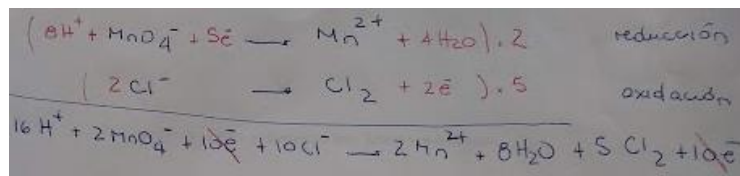 (8H⁺ + MnO₄⁻ + 5ē → Mn²⁺ + 4H₂O).2 reducción
(2Cl⁻ → Cl₂ + 2ē).5 oxidación
16H⁺ + 2MnO₄⁻ + 10ē + 10Cl⁻ → 2Mn²⁺ + 8H₂O + 5Cl₂ + 10ē